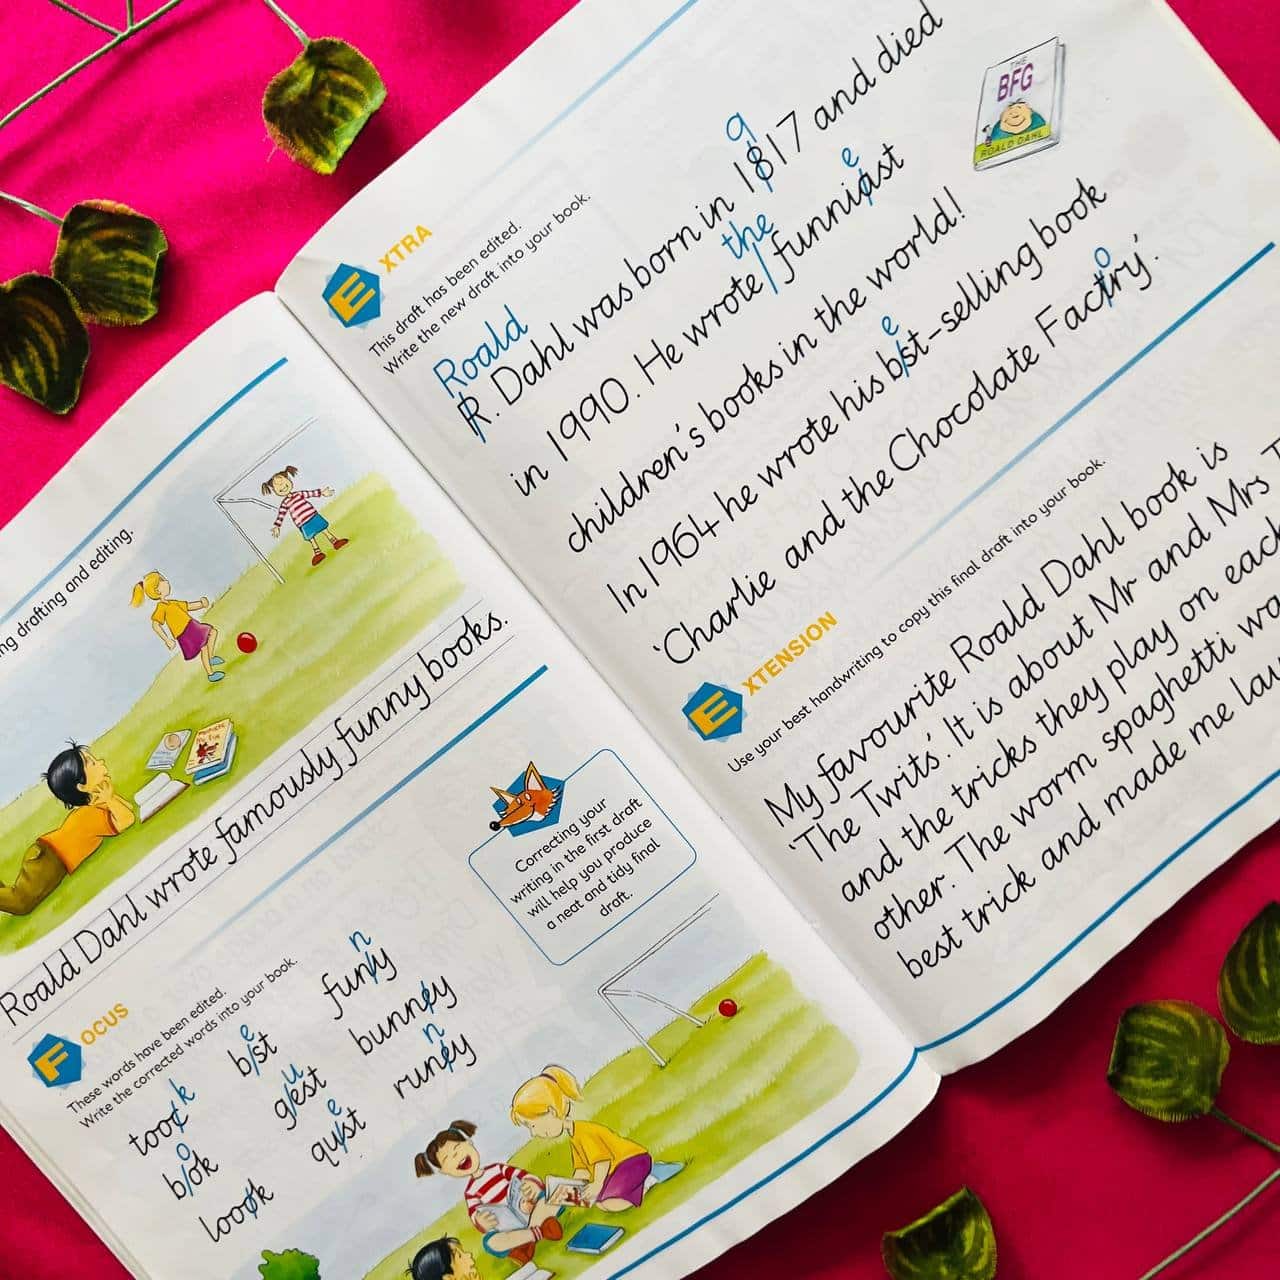 ng drafting and editing.
Roald Dahl wrote famously funny books.
FOCUS
These words have been edited.
Write the corrected words into your book.
toock k
bst e
funy n
bok o
gest u
bunney
loock
qust e
runey n
Correcting your
writing in the first draft
will help you produce
a neat and tidy final
draft.
EXTRA
This draft has been edited.
Write the new draft into your book.
Roald 9
R. Dahl was born in 1817 and died
the e
in 1990. He wrote funniast
children's books in the world!
e o
In 1964 he wrote his bst-selling book
'Charlie and the Chocolate Factry'.
THE
BFG
ROALD DAHL
EXTENSION
Use your best handwriting to copy this final draft into your book.
My favourite Roald Dahl book is
'The Twits'. It is about Mr and Mrs T
and the tricks they play on each
other. The worm spaghetti wa
best trick and made me lau